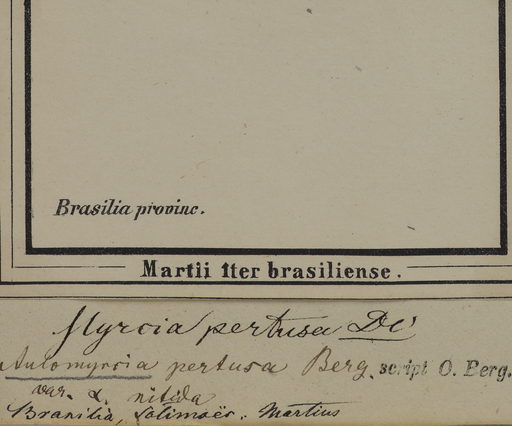 Brasilia provinc.
Martii Iter brasiliense.
Myrcia pertusa DC
Aulomyrcia pertusa Berg. script O. Berg.
var. α. nitida
Brasilia, Solimoës. Martius